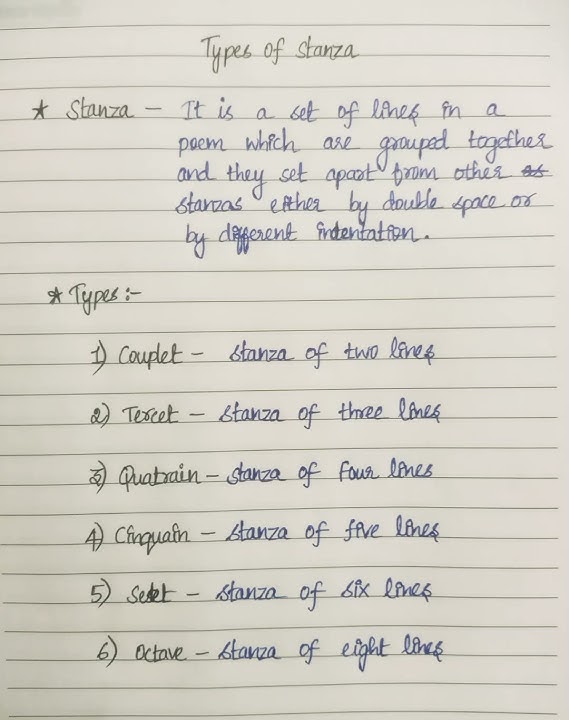 Types of Stanza
★ Stanza — It is a set of lines in a
poem which are grouped together
and they set apart from other
stanzas either by double space or
by different indentation.
★ Types :-
1) Couplet — stanza of two lines
2) Tercet — stanza of three lines
3) Quatrain — stanza of four lines
4) Cinquain — stanza of five lines
5) Sestet — stanza of six lines
6) Octave — stanza of eight lines